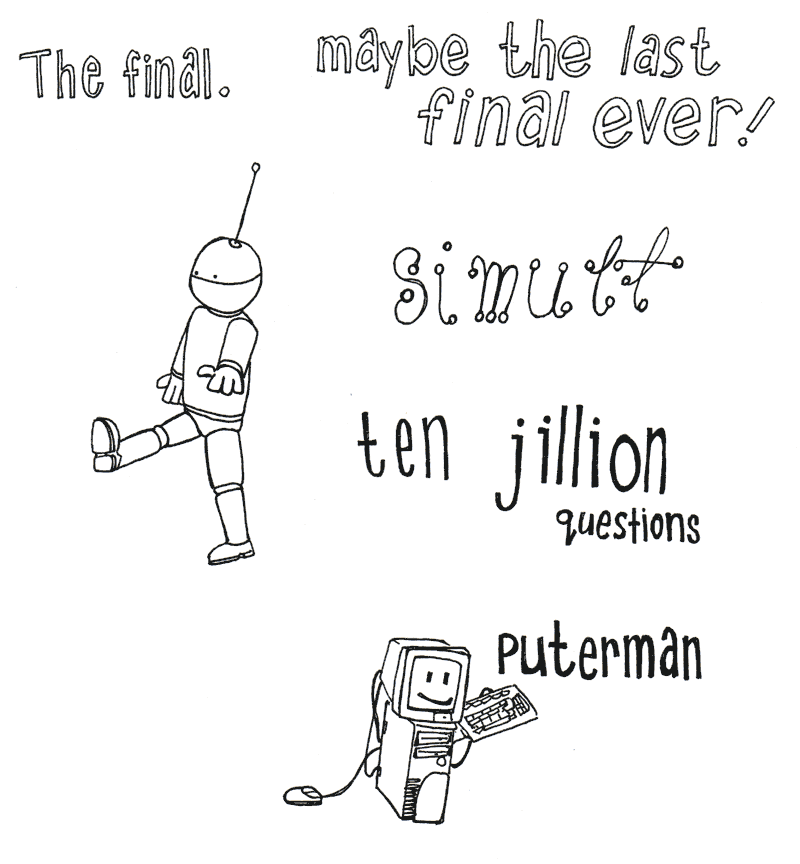 The final.
maybe the last
final ever!
simutt
ten jillion
questions
puterman